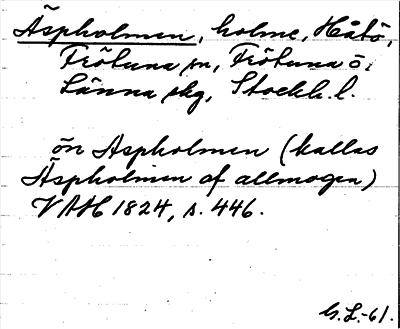 Äspholmen, holme, Håtö,
Frötuna sn, Frötuna o.
Länna skg, Stockh. l.
ön Aspholmen (kallas
Äspholmen af allmogen)
VAH 1824, s. 446.
G.L.-61.